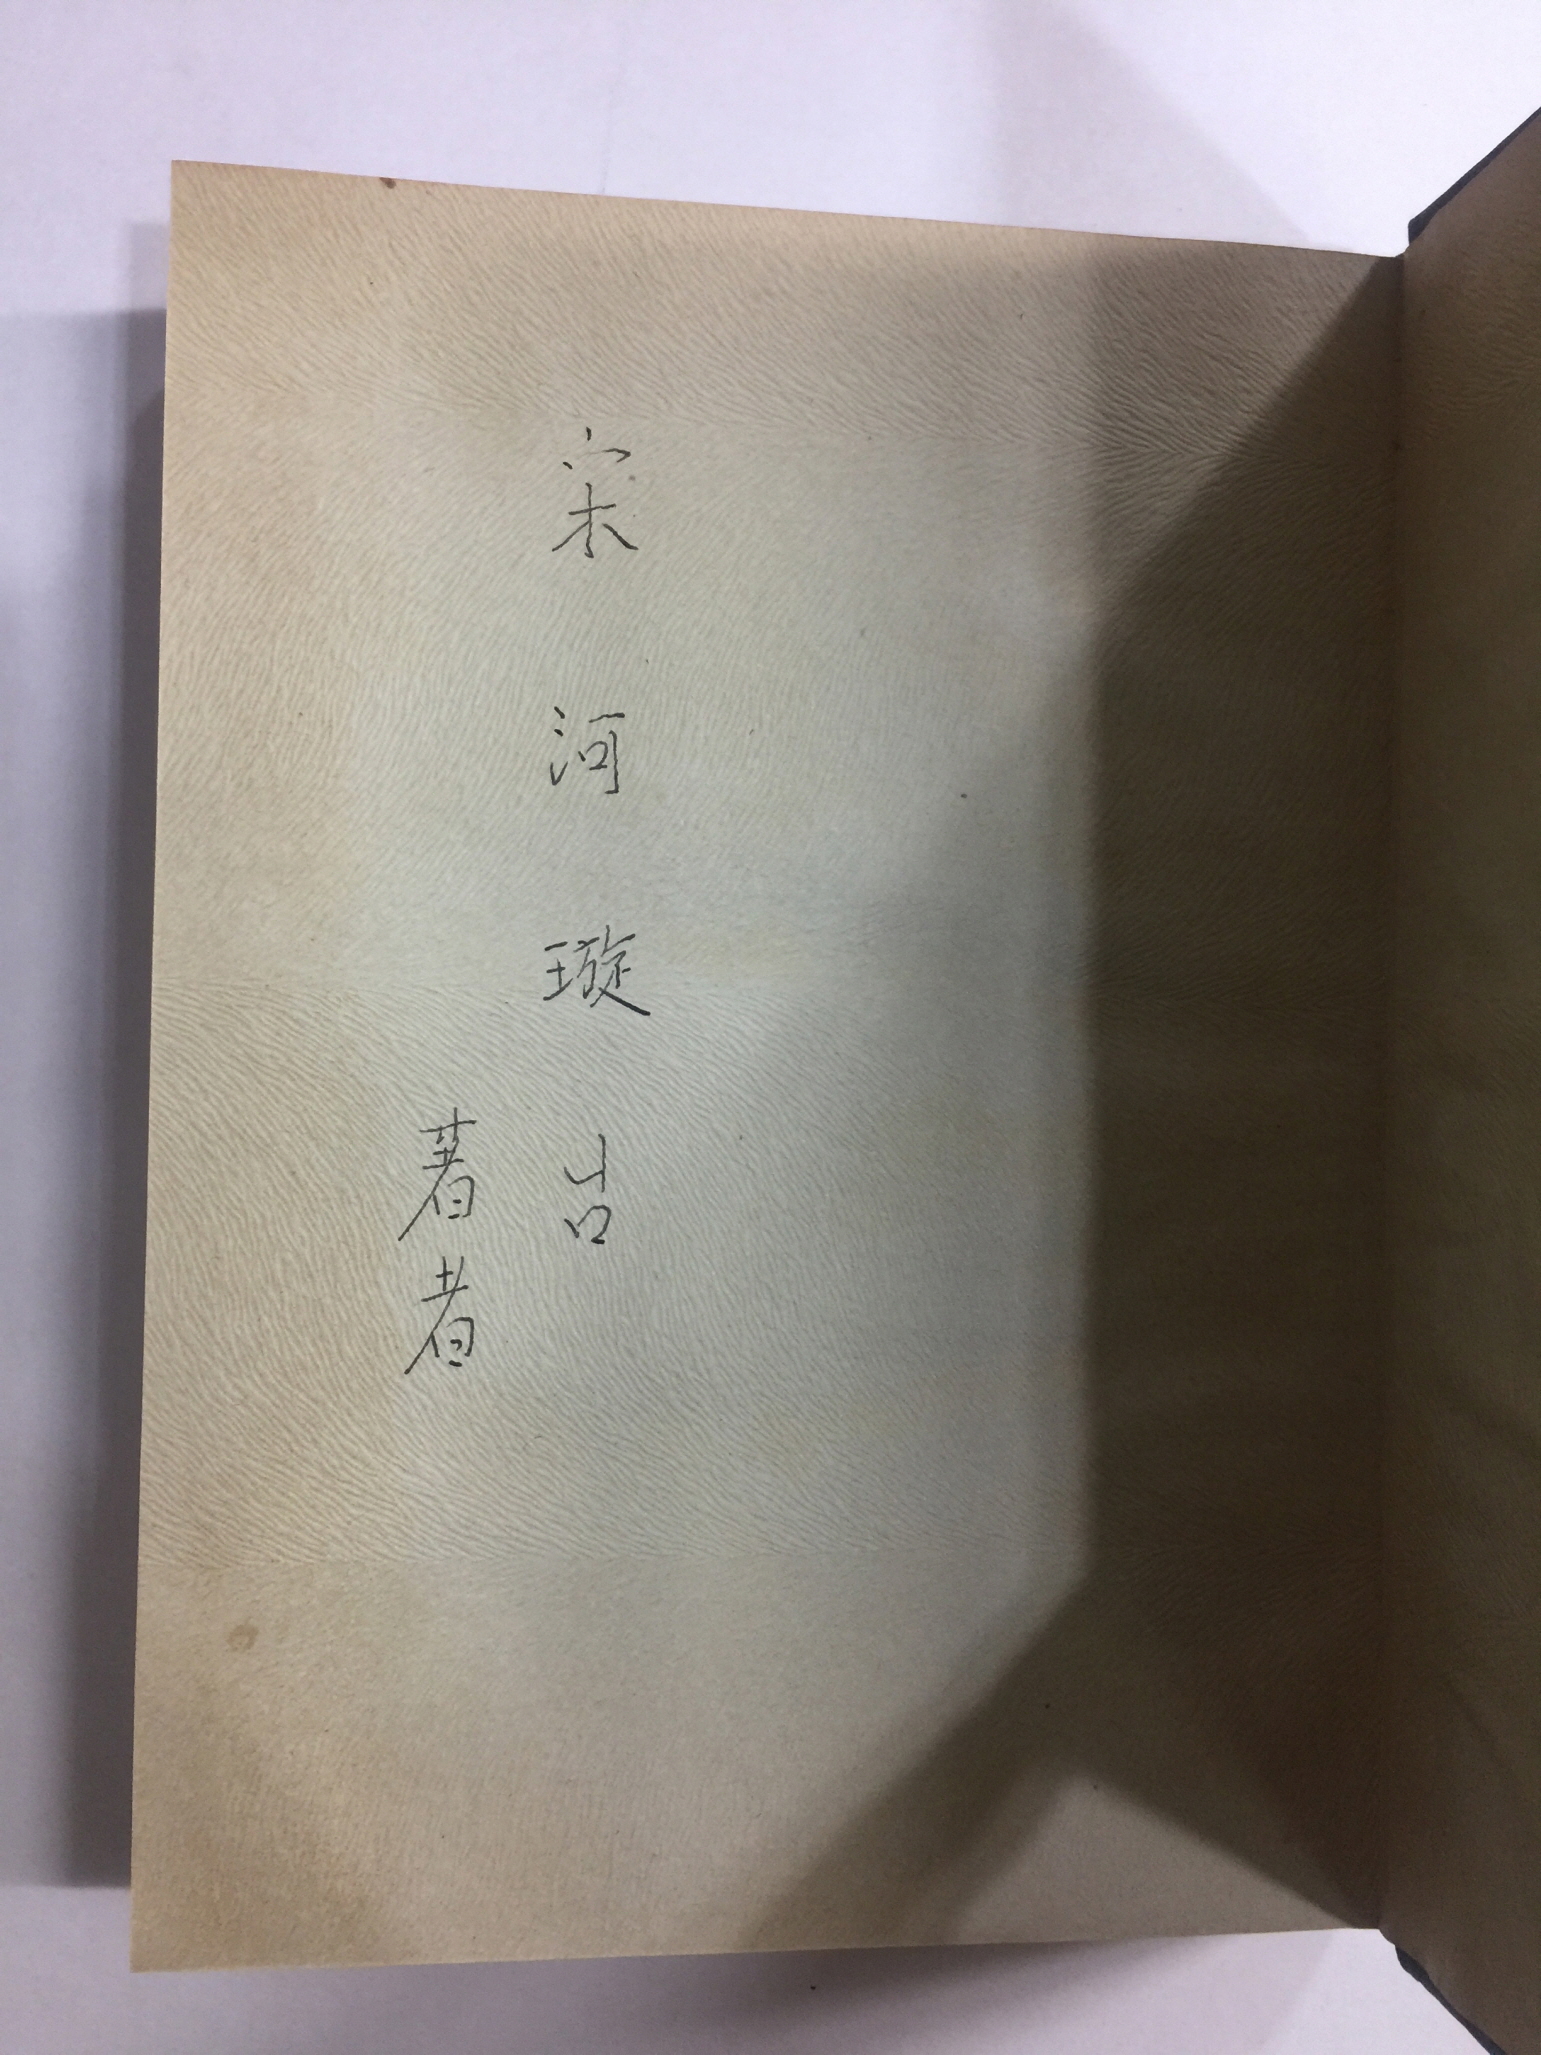 宋河璇님
著者